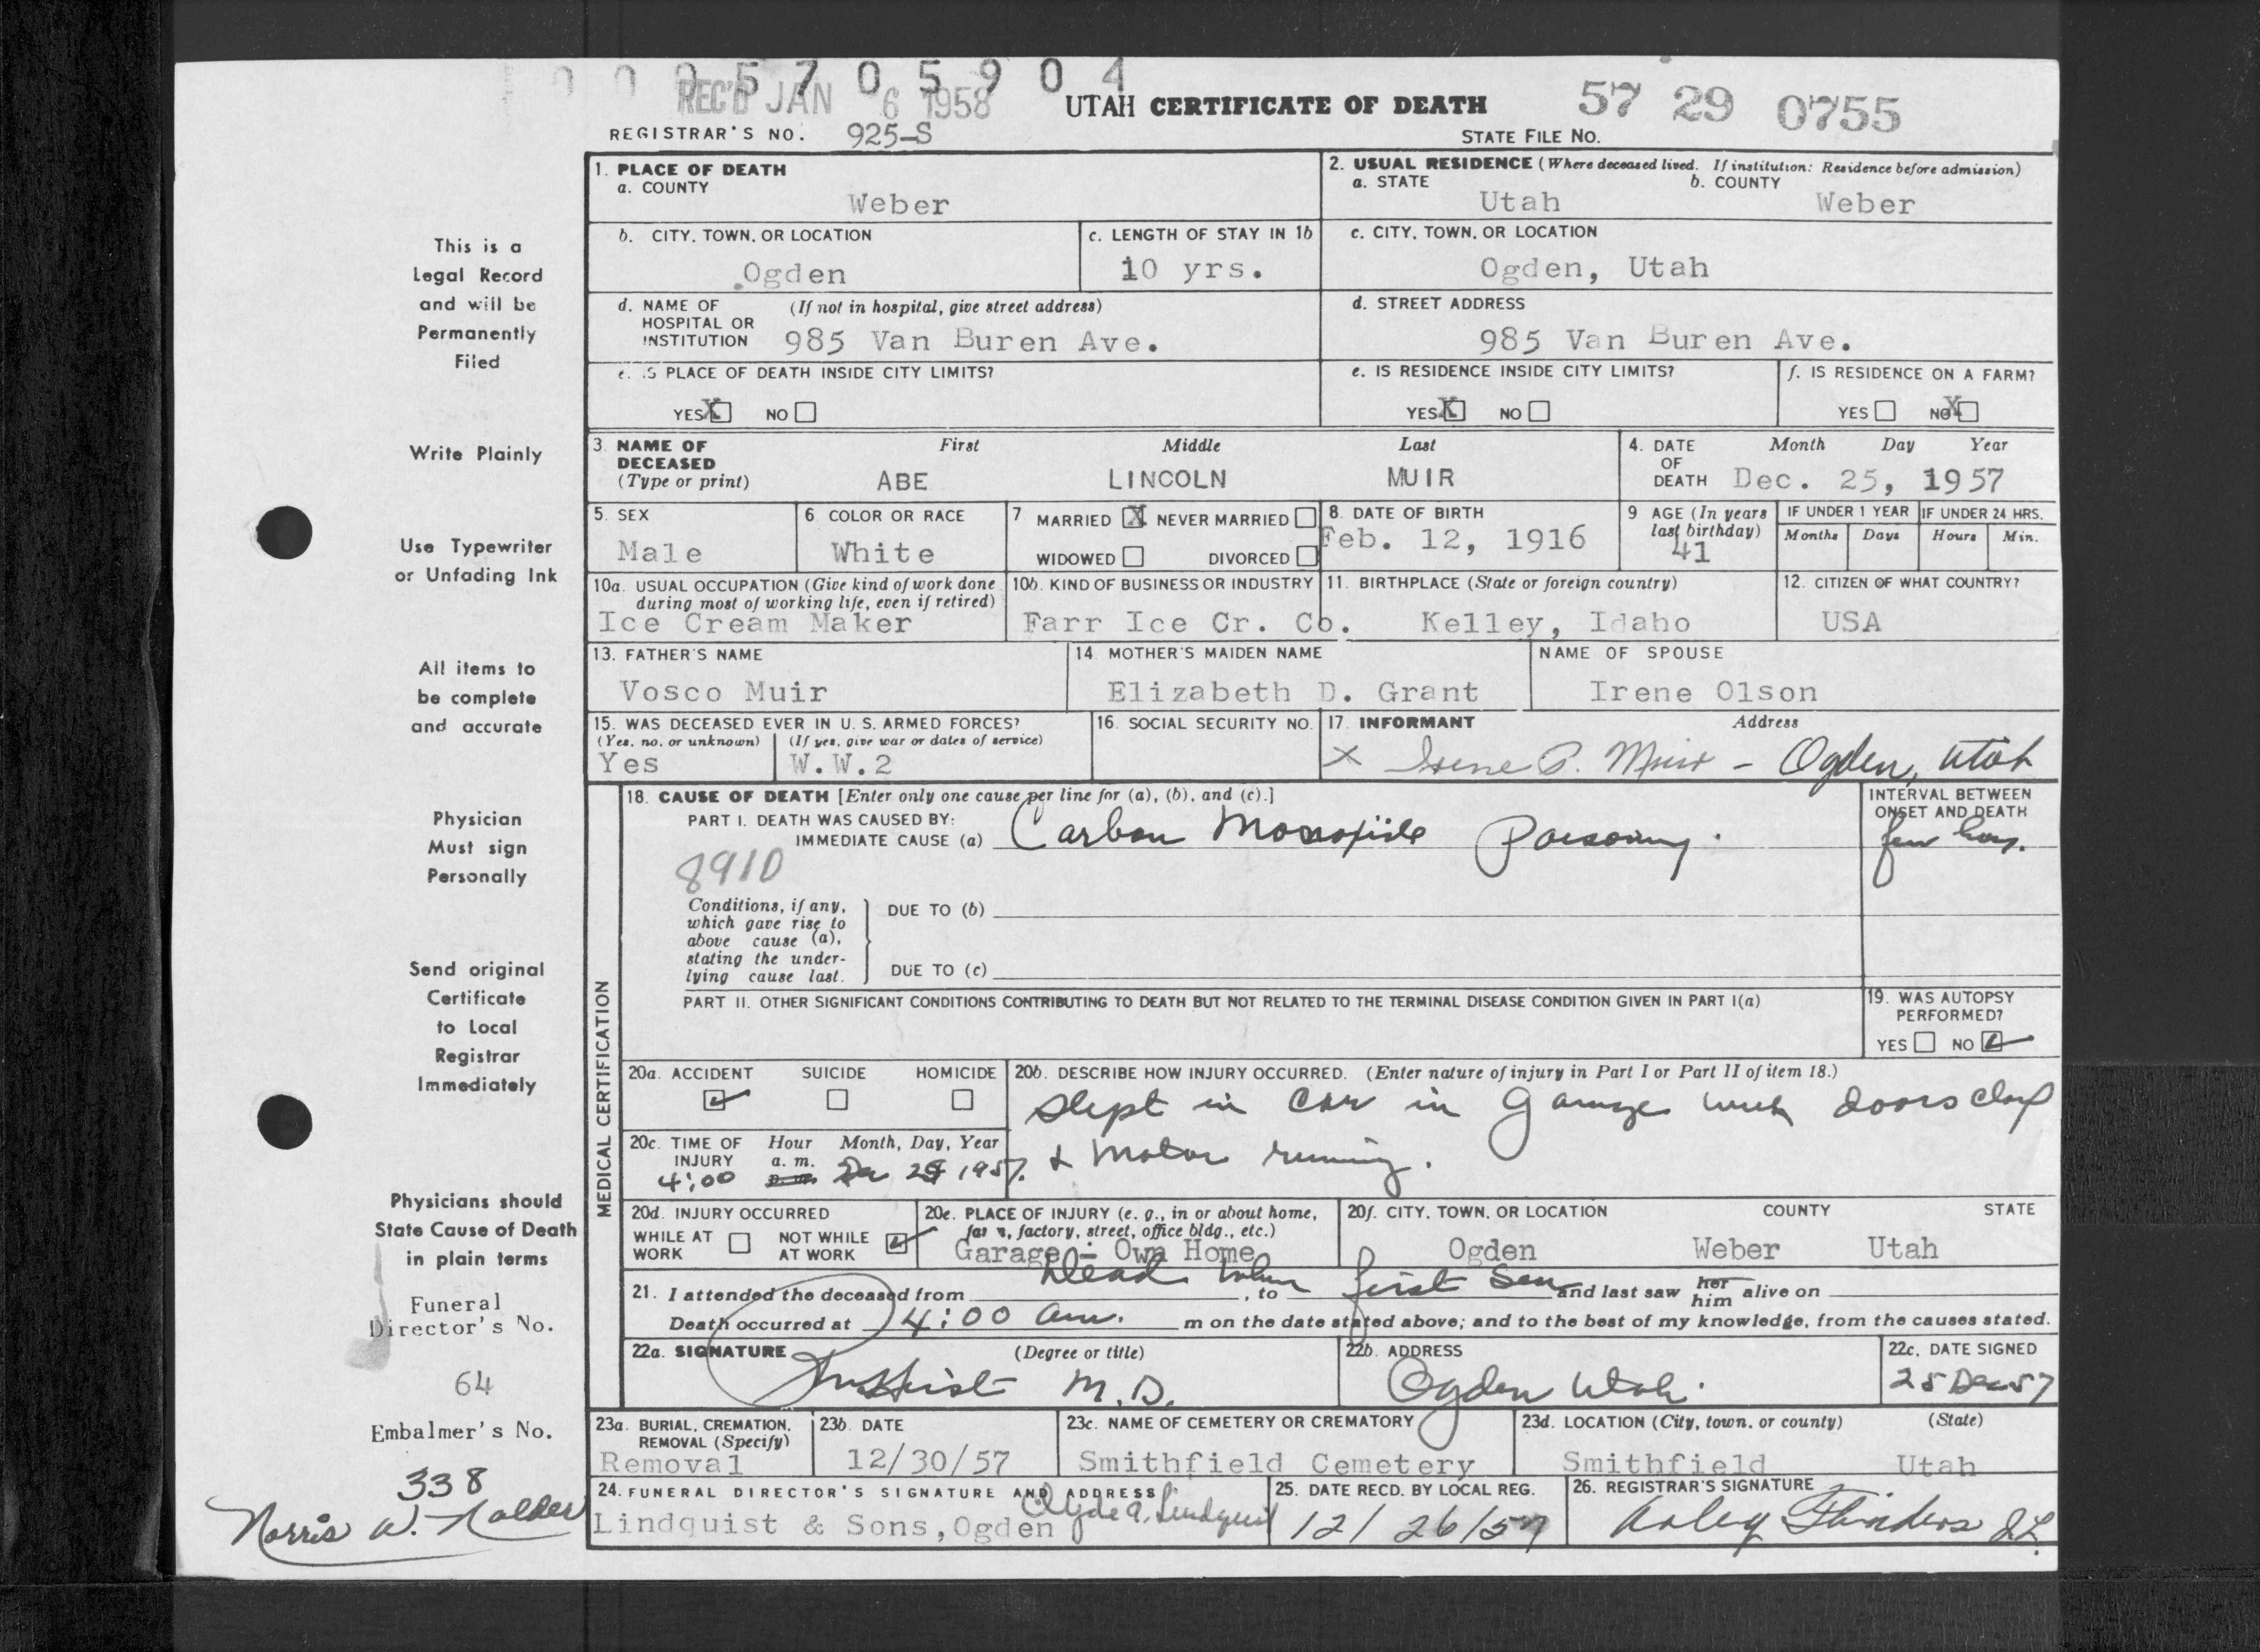 0 0 0 5 7 0 5 9 0 4
REC'D JAN 6 1958
UTAH CERTIFICATE OF DEATH
57 29 0755
REGISTRAR'S NO. 925-S
STATE FILE NO.
This is a
Legal Record
and will be
Permanently
Filed
Write Plainly
Use Typewriter
or Unfading Ink
All items to
be complete
and accurate
Physician
Must sign
Personally
Send original
Certificate
to Local
Registrar
Immediately
Physicians should
State Cause of Death
in plain terms
Funeral
Director's No.
64
Embalmer's No.
338
Norris W. Nalder
1. PLACE OF DEATH
a. COUNTY
Weber
2. USUAL RESIDENCE (Where deceased lived. If institution: Residence before admission)
a. STATE b. COUNTY
Utah Weber
b. CITY, TOWN, OR LOCATION
Ogden
c. LENGTH OF STAY IN 1b
10 yrs.
c. CITY, TOWN, OR LOCATION
Ogden, Utah
d. NAME OF (If not in hospital, give street address)
HOSPITAL OR
INSTITUTION 985 Van Buren Ave.
d. STREET ADDRESS
985 Van Buren Ave.
e. IS PLACE OF DEATH INSIDE CITY LIMITS?
YES X NO
e. IS RESIDENCE INSIDE CITY LIMITS?
YES X NO
f. IS RESIDENCE ON A FARM?
YES NO X
3. NAME OF First Middle Last
DECEASED
(Type or print) ABE LINCOLN MUIR
4. DATE Month Day Year
OF
DEATH Dec. 25, 1957
5. SEX
Male
6. COLOR OR RACE
White
7. MARRIED X NEVER MARRIED
WIDOWED DIVORCED
8. DATE OF BIRTH
Feb. 12, 1916
9. AGE (In years
last birthday)
41
IF UNDER 1 YEAR IF UNDER 24 HRS.
Months Days Hours Min.
10a. USUAL OCCUPATION (Give kind of work done
during most of working life, even if retired)
Ice Cream Maker
10b. KIND OF BUSINESS OR INDUSTRY
Farr Ice Cr. Co.
11. BIRTHPLACE (State or foreign country)
Kelley, Idaho
12. CITIZEN OF WHAT COUNTRY?
USA
13. FATHER'S NAME
Vosco Muir
14. MOTHER'S MAIDEN NAME
Elizabeth D. Grant
NAME OF SPOUSE
Irene Olson
15. WAS DECEASED EVER IN U. S. ARMED FORCES?
(Yes, no, or unknown) (If yes, give war or dates of service)
Yes W.W.2
16. SOCIAL SECURITY NO.
17. INFORMANT Address
X Irene P. Muir - Ogden, Utah
MEDICAL CERTIFICATION
18. CAUSE OF DEATH [Enter only one cause per line for (a), (b), and (c).]
PART I. DEATH WAS CAUSED BY:
IMMEDIATE CAUSE (a) Carbon Monoxide Poisoning.
INTERVAL BETWEEN
ONSET AND DEATH
few hrs.
8910
Conditions, if any,
which gave rise to
above cause (a),
stating the under-
lying cause last.
DUE TO (b)
DUE TO (c)
PART II. OTHER SIGNIFICANT CONDITIONS CONTRIBUTING TO DEATH BUT NOT RELATED TO THE TERMINAL DISEASE CONDITION GIVEN IN PART I(a)
19. WAS AUTOPSY
PERFORMED?
YES NO ✓
20a. ACCIDENT SUICIDE HOMICIDE
✓
20b. DESCRIBE HOW INJURY OCCURRED. (Enter nature of injury in Part I or Part II of item 18.)
Slept in car in garage with doors closed
& motor running.
20c. TIME OF Hour Month, Day, Year
INJURY a. m.
4:00 p. m. Dec 25 1957.
20d. INJURY OCCURRED
WHILE AT NOT WHILE ✓
WORK AT WORK
20e. PLACE OF INJURY (e. g., in or about home,
farm, factory, street, office bldg., etc.)
Garage - Own Home
20f. CITY, TOWN, OR LOCATION COUNTY STATE
Ogden Weber Utah
21. I attended the deceased from Dead when, to first seen and last saw her him alive on
Death occurred at 4:00 am. m on the date stated above; and to the best of my knowledge, from the causes stated.
22a. SIGNATURE (Degree or title)
M.D.
22b. ADDRESS
Ogden Utah.
22c. DATE SIGNED
25 Dec 57
23a. BURIAL, CREMATION,
REMOVAL (Specify)
Removal
23b. DATE
12/30/57
23c. NAME OF CEMETERY OR CREMATORY
Smithfield Cemetery
23d. LOCATION (City, town, or county) (State)
Smithfield Utah
24. FUNERAL DIRECTOR'S SIGNATURE AND ADDRESS
Clyde A. Lindquist
Lindquist & Sons, Ogden
25. DATE RECD. BY LOCAL REG.
12/26/57
26. REGISTRAR'S SIGNATURE
Flinders